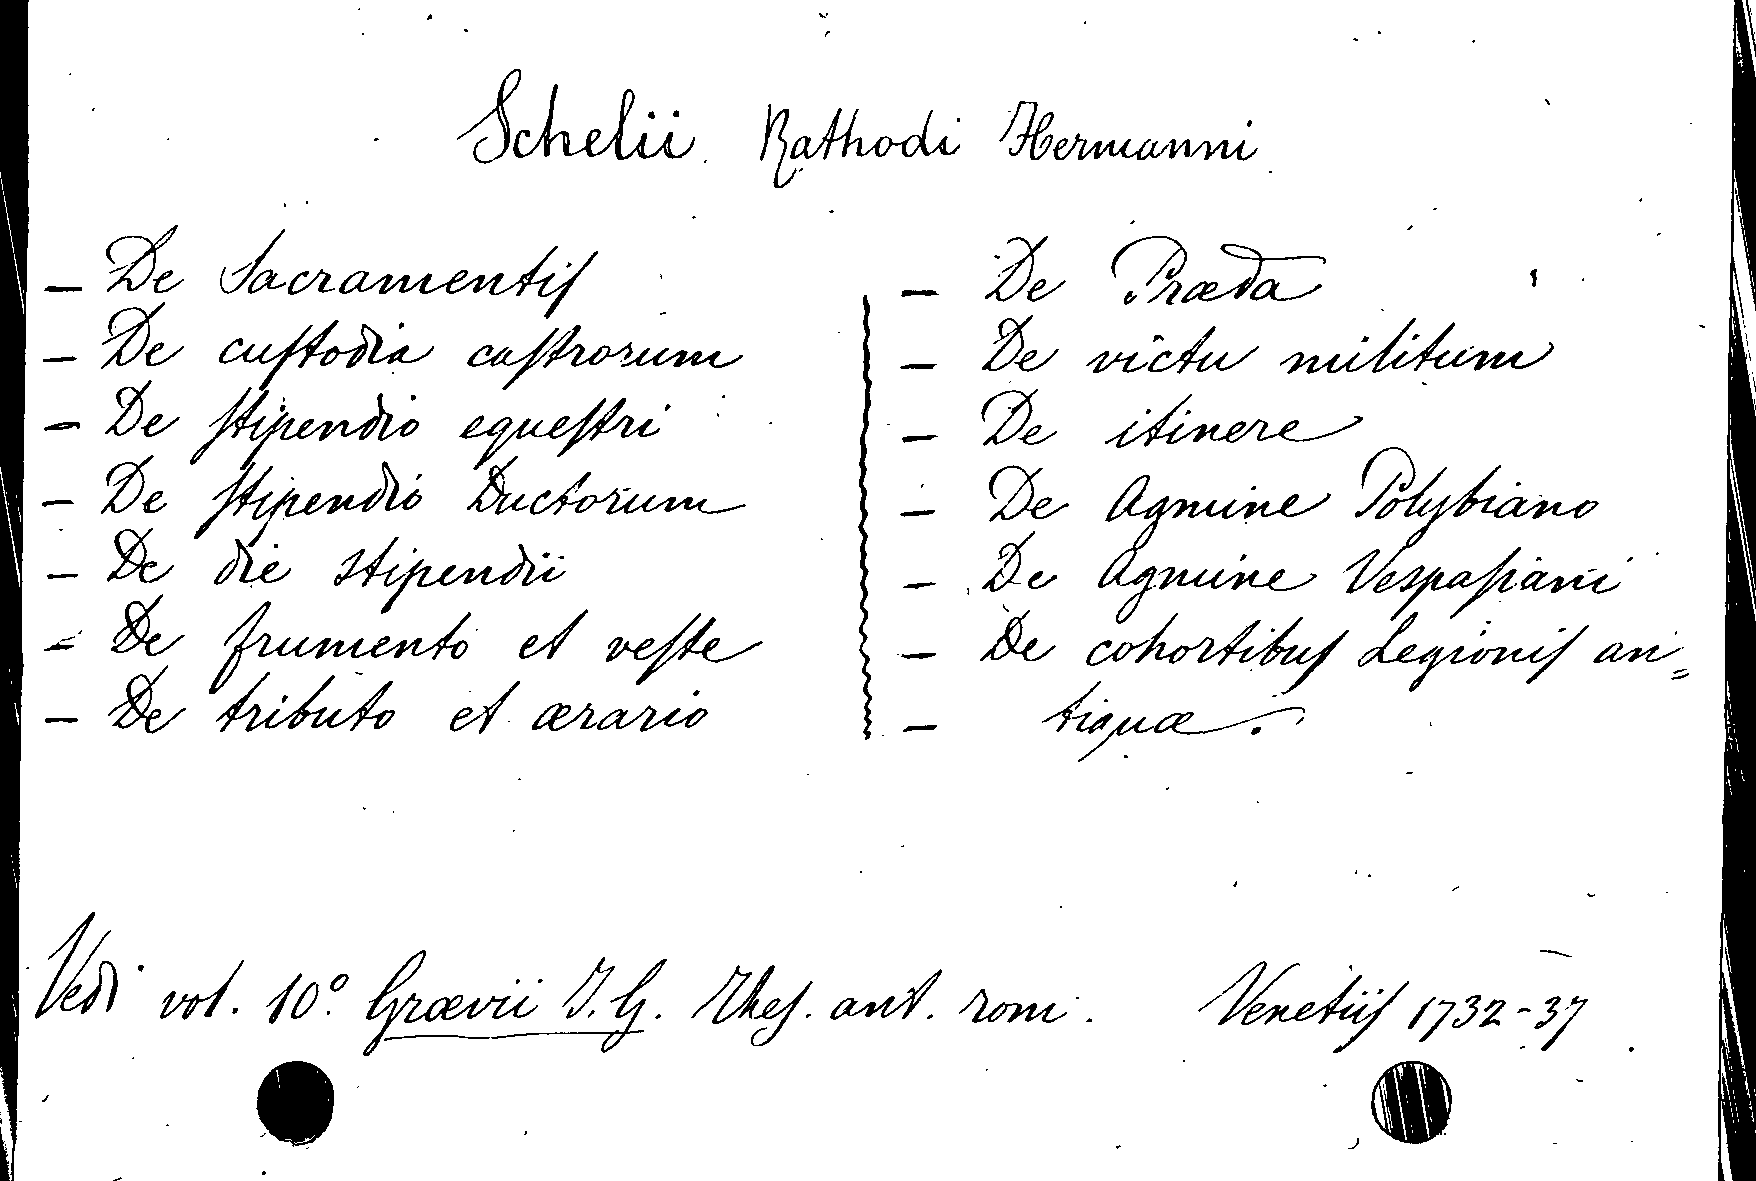 Schelii Rathodi Hermanni
– De Sacramentis
– De custodia castrorum
– De stipendio equestri
– De stipendio Ductorum
– De die stipendii
– De frumento et veste
– De tributo et ærario
– De Præda
– De victu militum
– De itinere
– De Agmine Polybiano
– De Agmine Vespasiani
– De cohortibus Legionis an=
– tiquæ.
Vedi vol. 10º Grævii J. G. Thes. ant. rom. Venetiis 1732-37